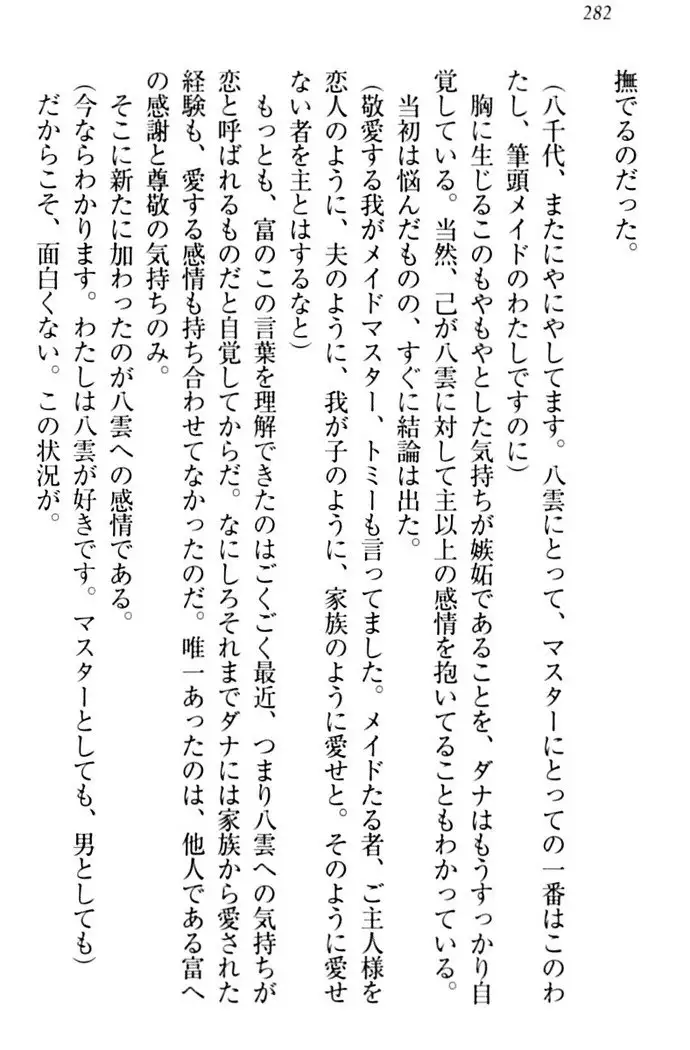 282
撫でるのだった。
(八千代、またにやにやしてます。八雲にとって、マスターにとっての一番はこのわ
たし、筆頭メイドのわたしですのに)
胸に生じるこのもやもやとした気持ちが嫉妬であることを、ダナはもうすっかり自
覚している。当然、己が八雲に対して主以上の感情を抱いてることもわかっている。
当初は悩んだものの、すぐに結論は出た。
(敬愛する我がメイドマスター、トミーも言ってました。メイドたる者、ご主人様を
恋人のように、夫のように、我が子のように、家族のように愛せと。そのように愛せ
ない者を主とはするなと)
もっとも、富のこの言葉を理解できたのはごくごく最近、つまり八雲への気持ちが
恋と呼ばれるものだと自覚してからだ。なにしろそれまでダナには家族から愛された
経験も、愛する感情も持ち合わせてなかったのだ。唯一あったのは、他人である富へ
の感謝と尊敬の気持ちのみ。
そこに新たに加わったのが八雲への感情である。
(今ならわかります。わたしは八雲が好きです。マスターとしても、男としても)
だからこそ、面白くない。この状況が。